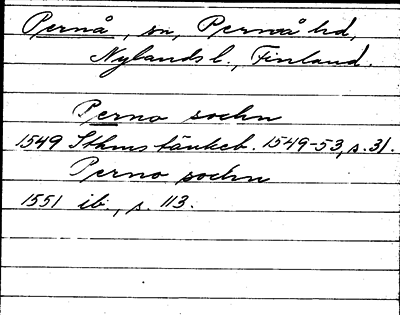 Pernå, sn, Pernå hd,
Nylands l., Finland.
Perno sochn
1549 Sthms tänkeb. 1549-53, s. 31.
Perno sochn
1551 ib., s. 113.